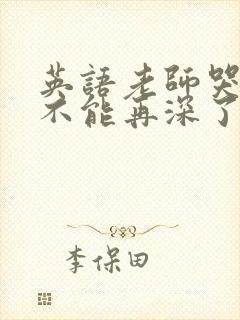 英語老師哭
不能再深了
李保田